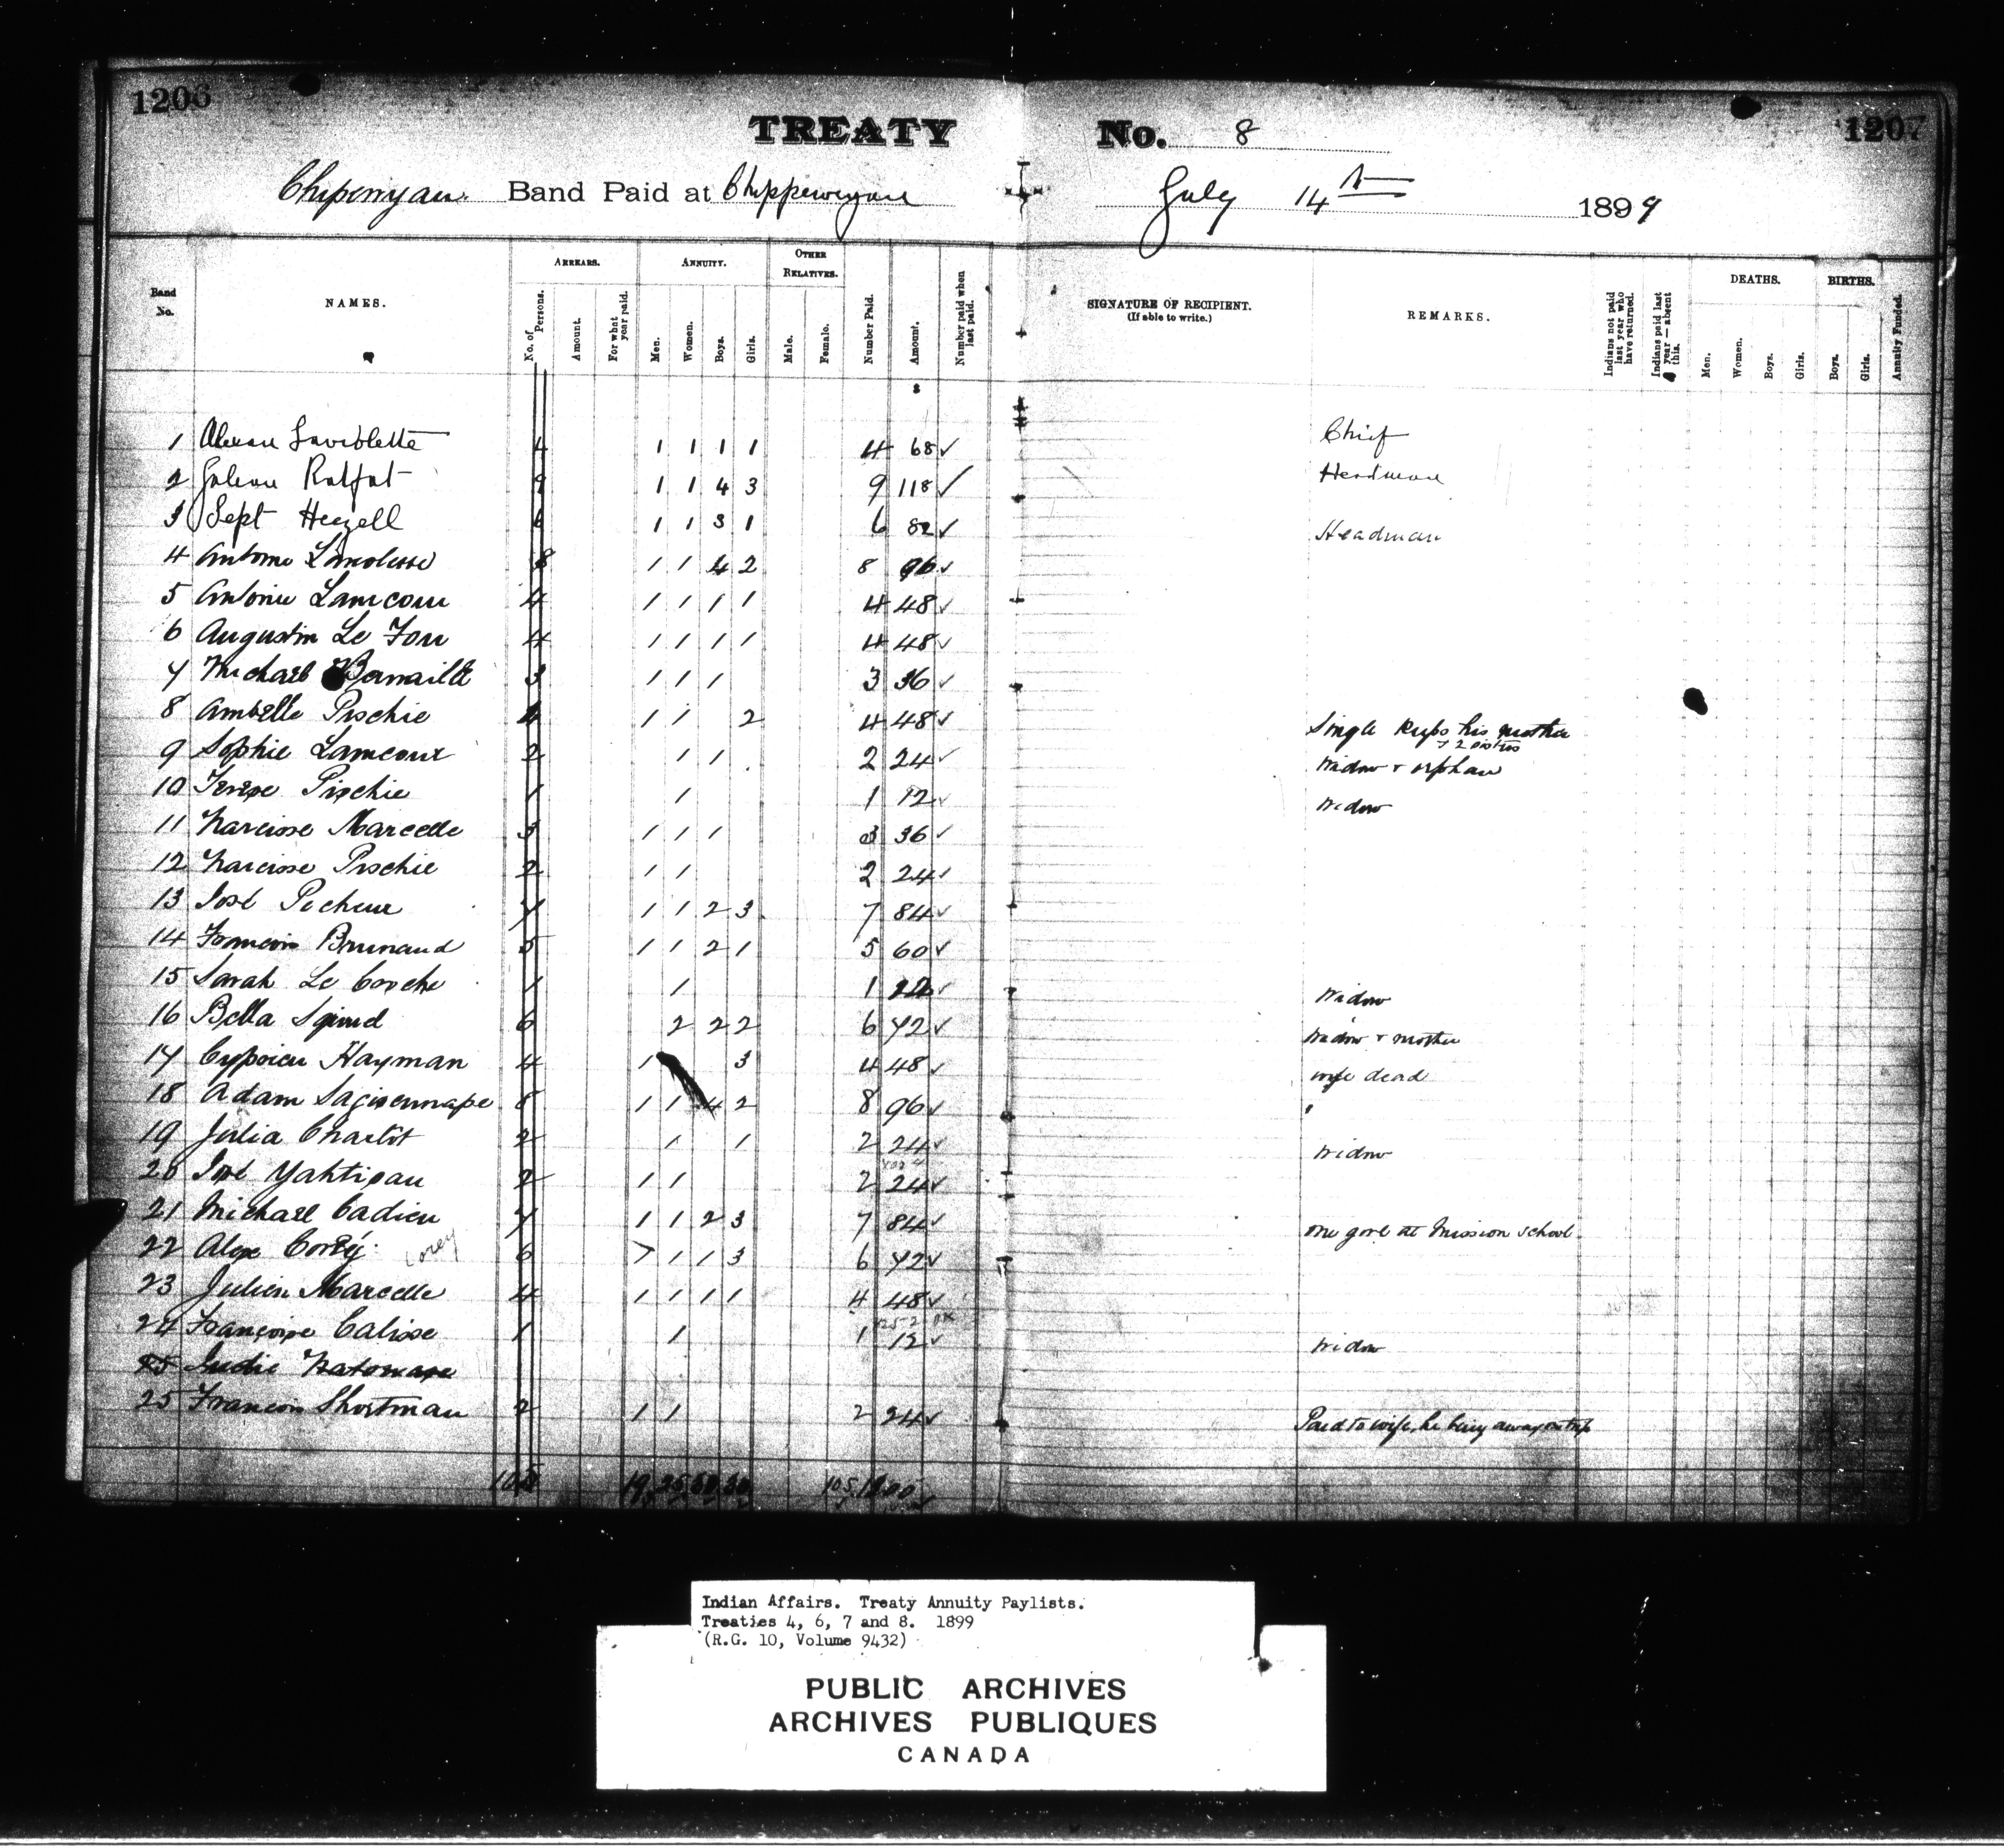 1206
TREATY No. 8
1207
Chipewyan Band Paid at Chippewyan July 14th 1899
Band No.
NAMES.
ARREARS.
No. of Persons.
Amount.
For what year paid.
ANNUITY.
Men.
Women.
Boys.
Girls.
OTHER RELATIVES.
Male.
Female.
Number Paid.
Amount.
Number paid when last paid.
SIGNATURE OF RECIPIENT.
(If able to write.)
REMARKS.
Indians not paid last year who have returned.
Indians paid last year—absent this.
DEATHS.
Men.
Women.
Boys.
Girls.
BIRTHS.
Boys.
Girls.
Annuity Funded.
$
1 Laviolette 4 1 1 1 1 4 68 ✓ Chief
2 Julian Ratfat 9 1 1 4 3 9 118 ✓ Headman
3 Sept Hezell 6 1 1 3 1 6 82 ✓ Headman
4 Antoine 8 1 1 4 2 8 96 ✓
5 Antoine Lamcour 4 1 1 1 1 4 48 ✓
6 Augustin Le Fou 4 1 1 1 1 4 48 ✓
7 Michael Bernaille 3 1 1 1 3 36 ✓
8 Ambelle Pischie 4 1 1 2 4 48 ✓ Single keeps his mother + 2 sisters
9 Sophie Lamcour 2 1 1 2 24 ✓ Widow + orphan
10 Pischie 1 1 1 12 ✓ Widow
11 Narcisse Marcelle 3 1 1 1 3 36 ✓
12 Narcisse Pischie 2 1 1 2 24 ✓
13 José Pecheur 7 1 1 2 3 7 84 ✓
14 Francois Brunaud 5 1 1 2 1 5 60 ✓
15 Sarah Le Cooche 1 1 1 12 ✓ Widow
16 Bella 6 2 2 2 6 72 ✓ Widow + mother
17 Hayman 4 1 3 4 48 ✓ wife dead
18 Adam 8 1 1 4 2 8 96 ✓
19 Julia Charlot 2 1 1 2 24 ✓ Widow
20 José Yahtisau 2 1 1 2 24 ✓
21 Michael Cadieu 7 1 1 2 3 7 84 ✓ one girl at Mission school
22 Alex Corey Corey 6 1 1 1 3 6 72 ✓
23 Julien Marcelle 4 1 1 1 1 4 48 ✓
24 Françoise Calisse 1 1 1 12 ✓ Widow
25
25 Francois Shortman 2 1 1 2 24 ✓ Paid to wife, he being away on trip
105 19 25 105
Indian Affairs. Treaty Annuity Paylists.
Treaties 4, 6, 7 and 8. 1899
(R.G. 10, Volume 9432)
PUBLIC ARCHIVES
ARCHIVES PUBLIQUES
CANADA